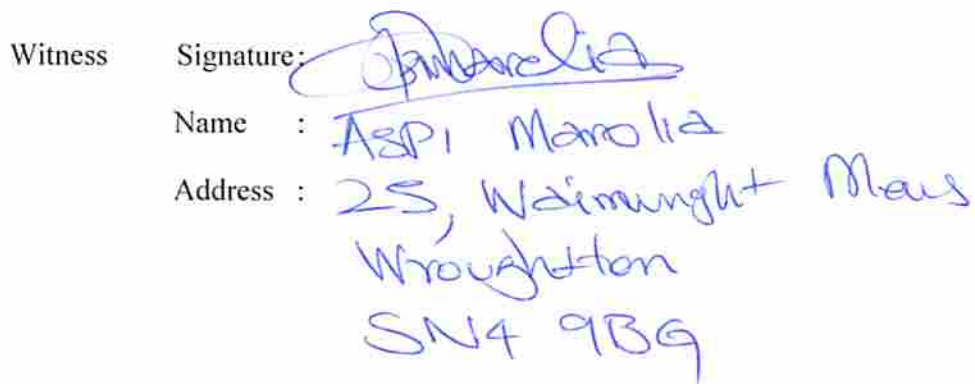 Witness Signature: Marolia
Name : Aspi Marolia
Address : 25, Wainwright Mews
Wroughton
SN4 9BG